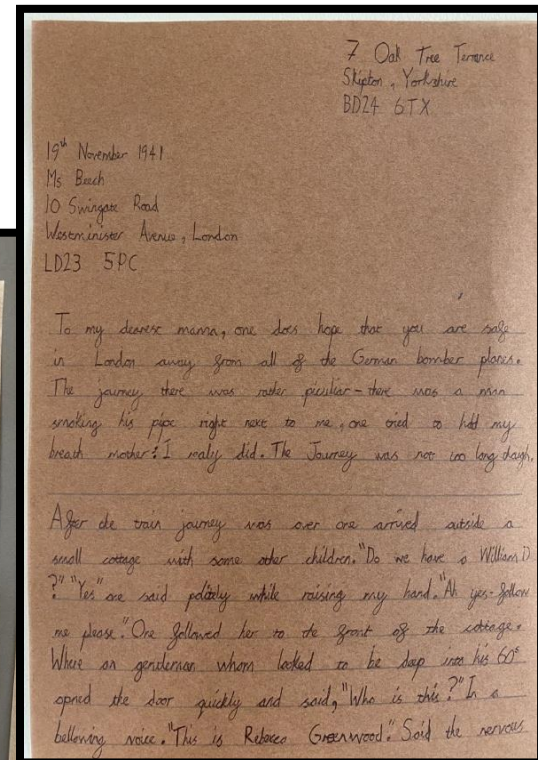 7 Oak Tree Terrance
Skipton, Yorkshire
BD24 6TX
19th November 1941
Ms Beech
10 Swingate Road
Westminister Avenue, London
LD23 5PC
To my dearest mama, one does hope that you are safe
in London away from all of the German bomber planes.
The journey there was rather piculiar - there was a man
smoking his pipe right next to me, one tried to hold my
breath mother! I realy did. The Journey was not too long though.
After the train journey was over one arrived outside a
small cottage with some other children. "Do we have a William D
?" "Yes" one said politely while raising my hand. "Ah yes- follow
me please." One followed her to the front of the cottage.
Where an genderman whom looked to be deep into his 60s
opned the door quickly and said, "Who is this?" In a
bellowing voice. "This is Rebecca Greenwood." Said the nervous